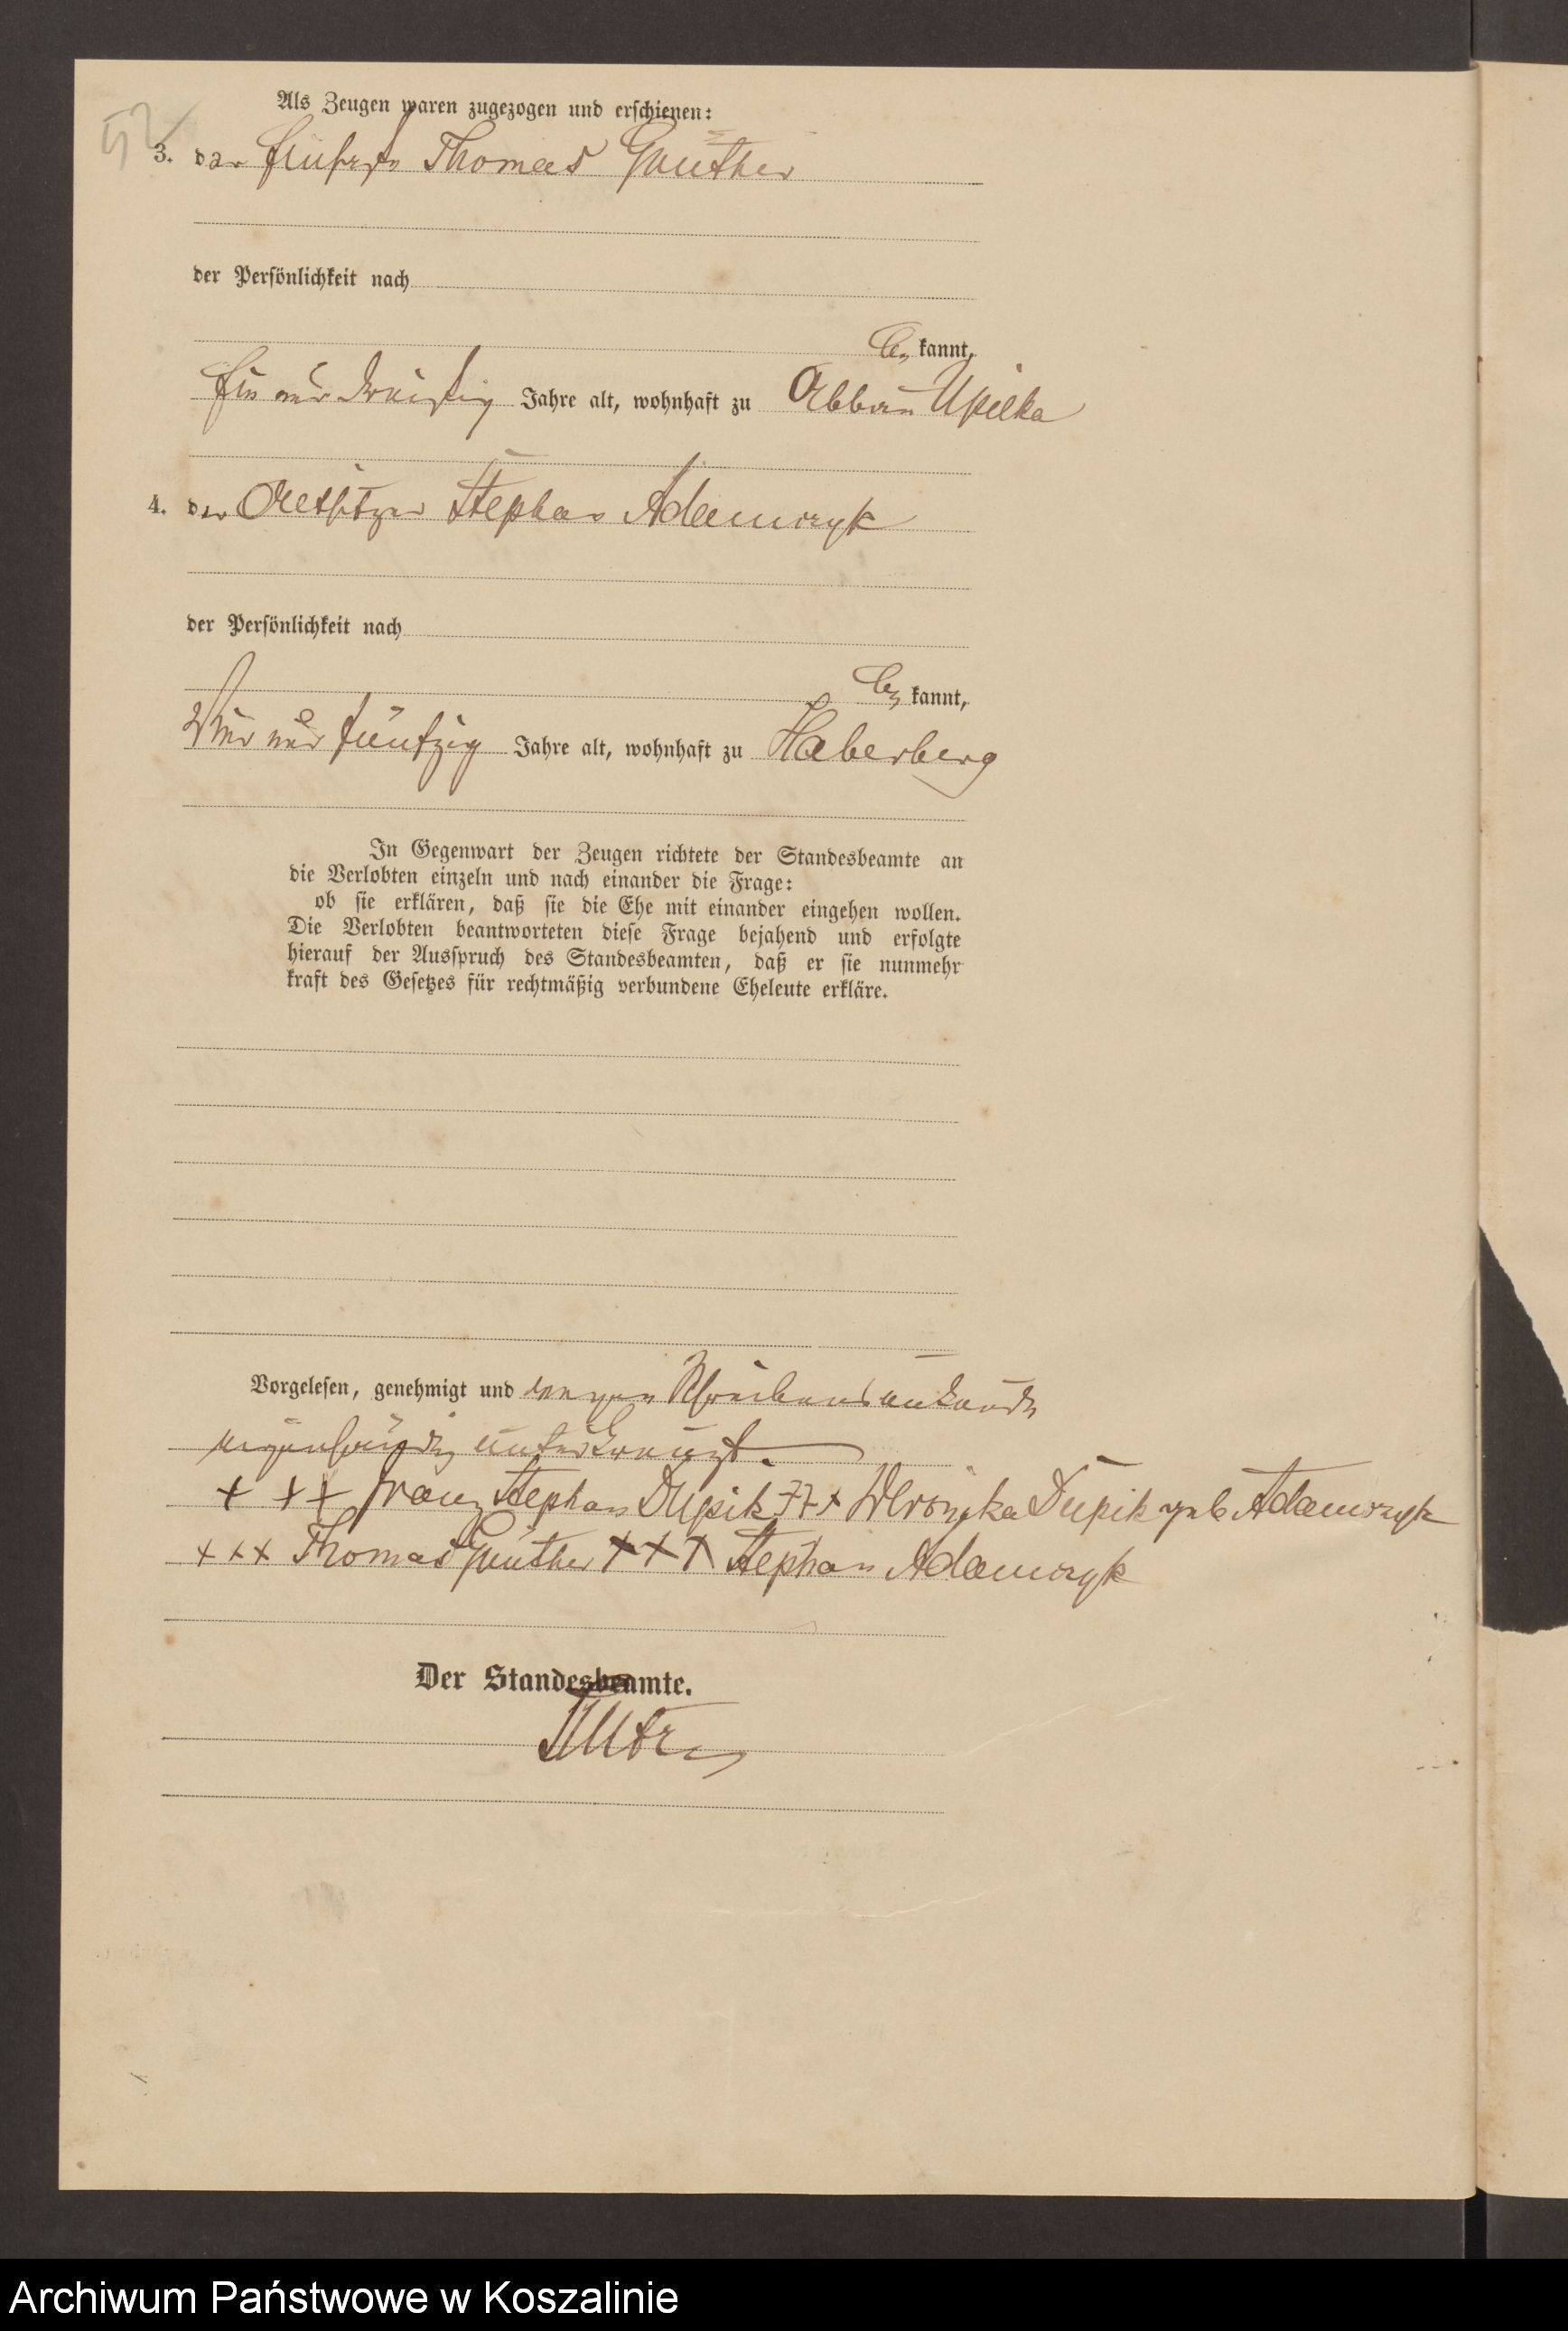 52
Als Zeugen waren zugezogen und erschienen:
3. der Thomas Günther
der Persönlichkeit nach
be kannt,
Ein und dreißig Jahre alt, wohnhaft zu Abbau Upilka
4. der Altsitzer Stephan Adamczyk
der Persönlichkeit nach
be kannt,
Vier und fünfzig Jahre alt, wohnhaft zu Haberberg
In Gegenwart der Zeugen richtete der Standesbeamte an
die Verlobten einzeln und nach einander die Frage:
ob sie erklären, daß sie die Ehe mit einander eingehen wollen.
Die Verlobten beantworteten diese Frage bejahend und erfolgte
hierauf der Ausspruch des Standesbeamten, daß er sie nunmehr
kraft des Gesetzes für rechtmäßig verbundene Eheleute erkläre.
Vorgelesen, genehmigt und wegen Schreibensunkunde
eigenhändig unterkreuzt.
+ + + Franz Stephan Dupik + + + Weronika Dupik geb Adamczyk
+ + + Thomas Günther + + + Stephan Adamczyk
Der Standesbeamte.
Archiwum Państwowe w Koszalinie